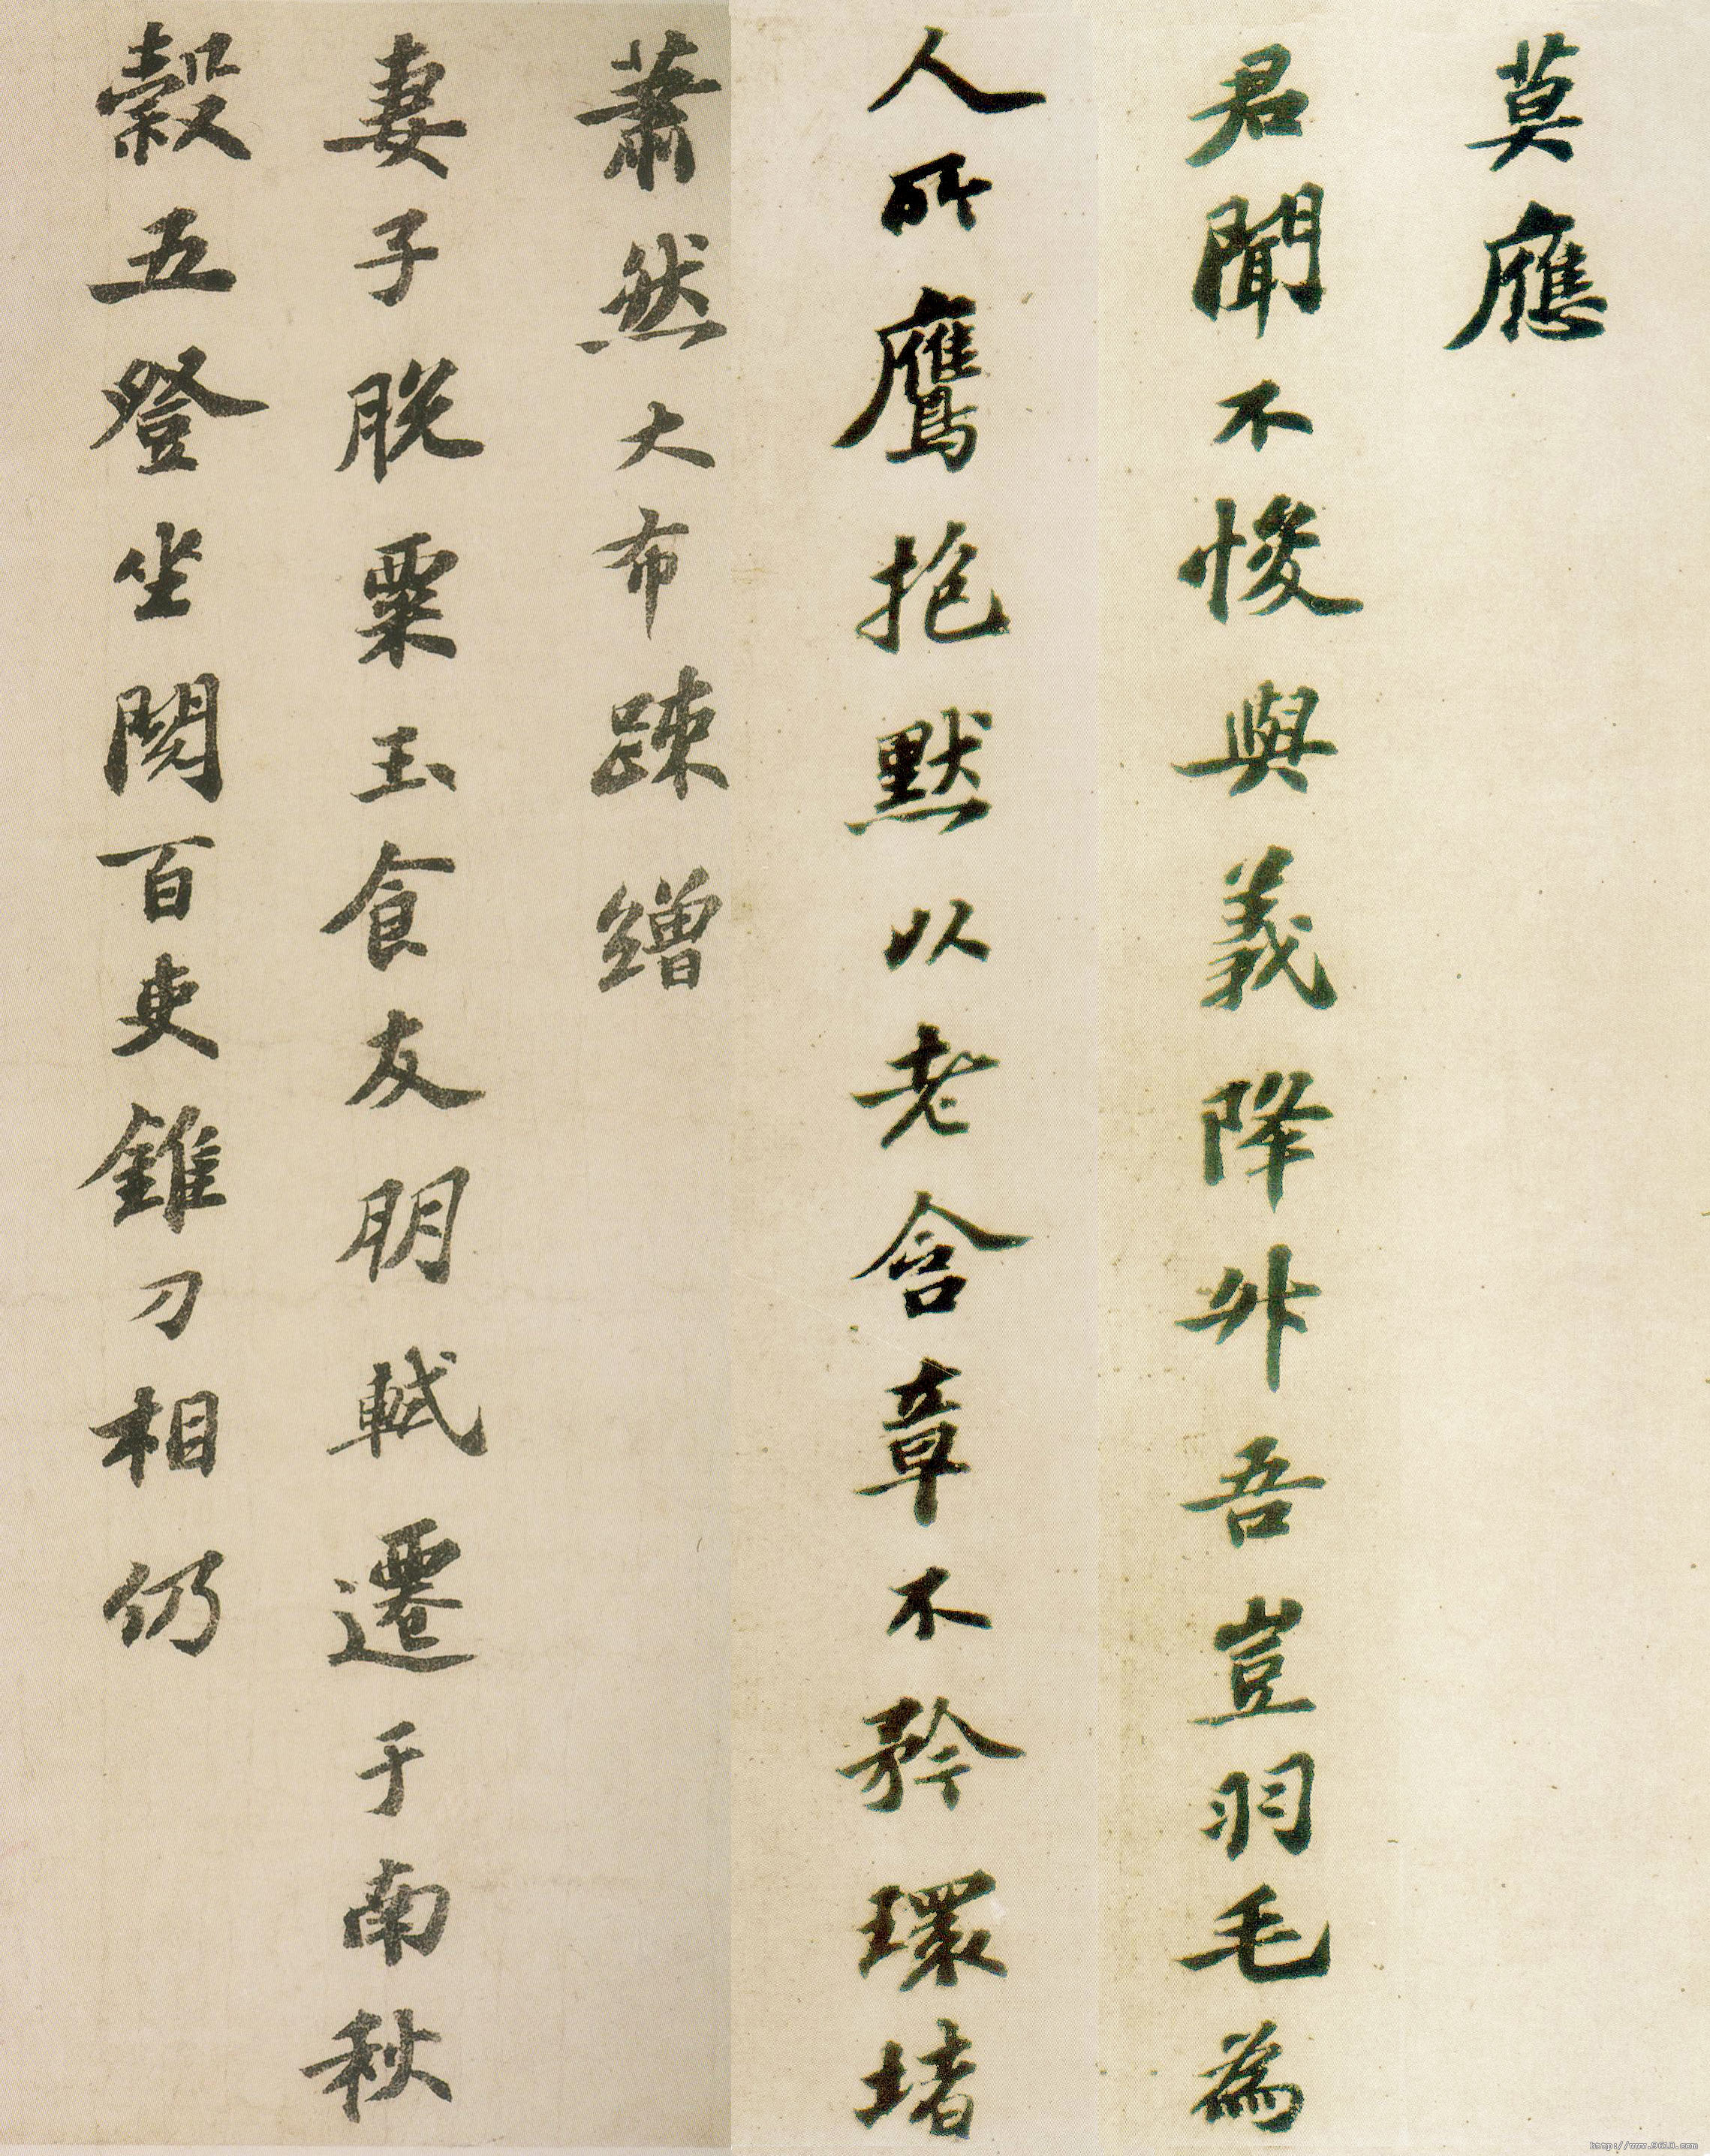 莫應
君聞不悛與義降升吾豈羽毛為
人所鷹抱默以老含章不矜環堵
蕭然大布疎繒
妻子脱粟玉食友朋軾遷于南秋
穀五登坐閱百吏錐刀相仍
http://www.9610.com